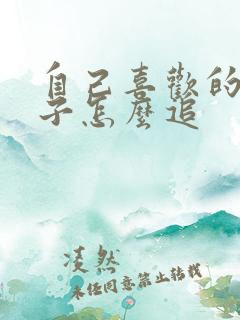 自己喜歡的
子怎麼追
凌然
未经同意禁止转载